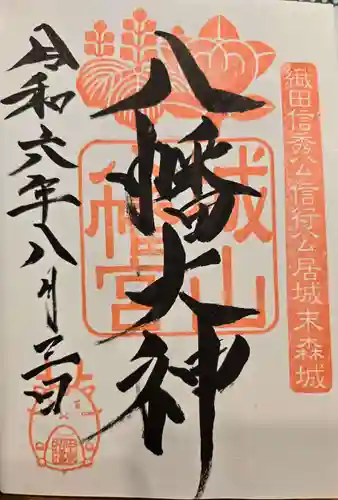 織田信秀公信行公居城末森城
八幡大神
城山
八幡宮
令和六年八月三日